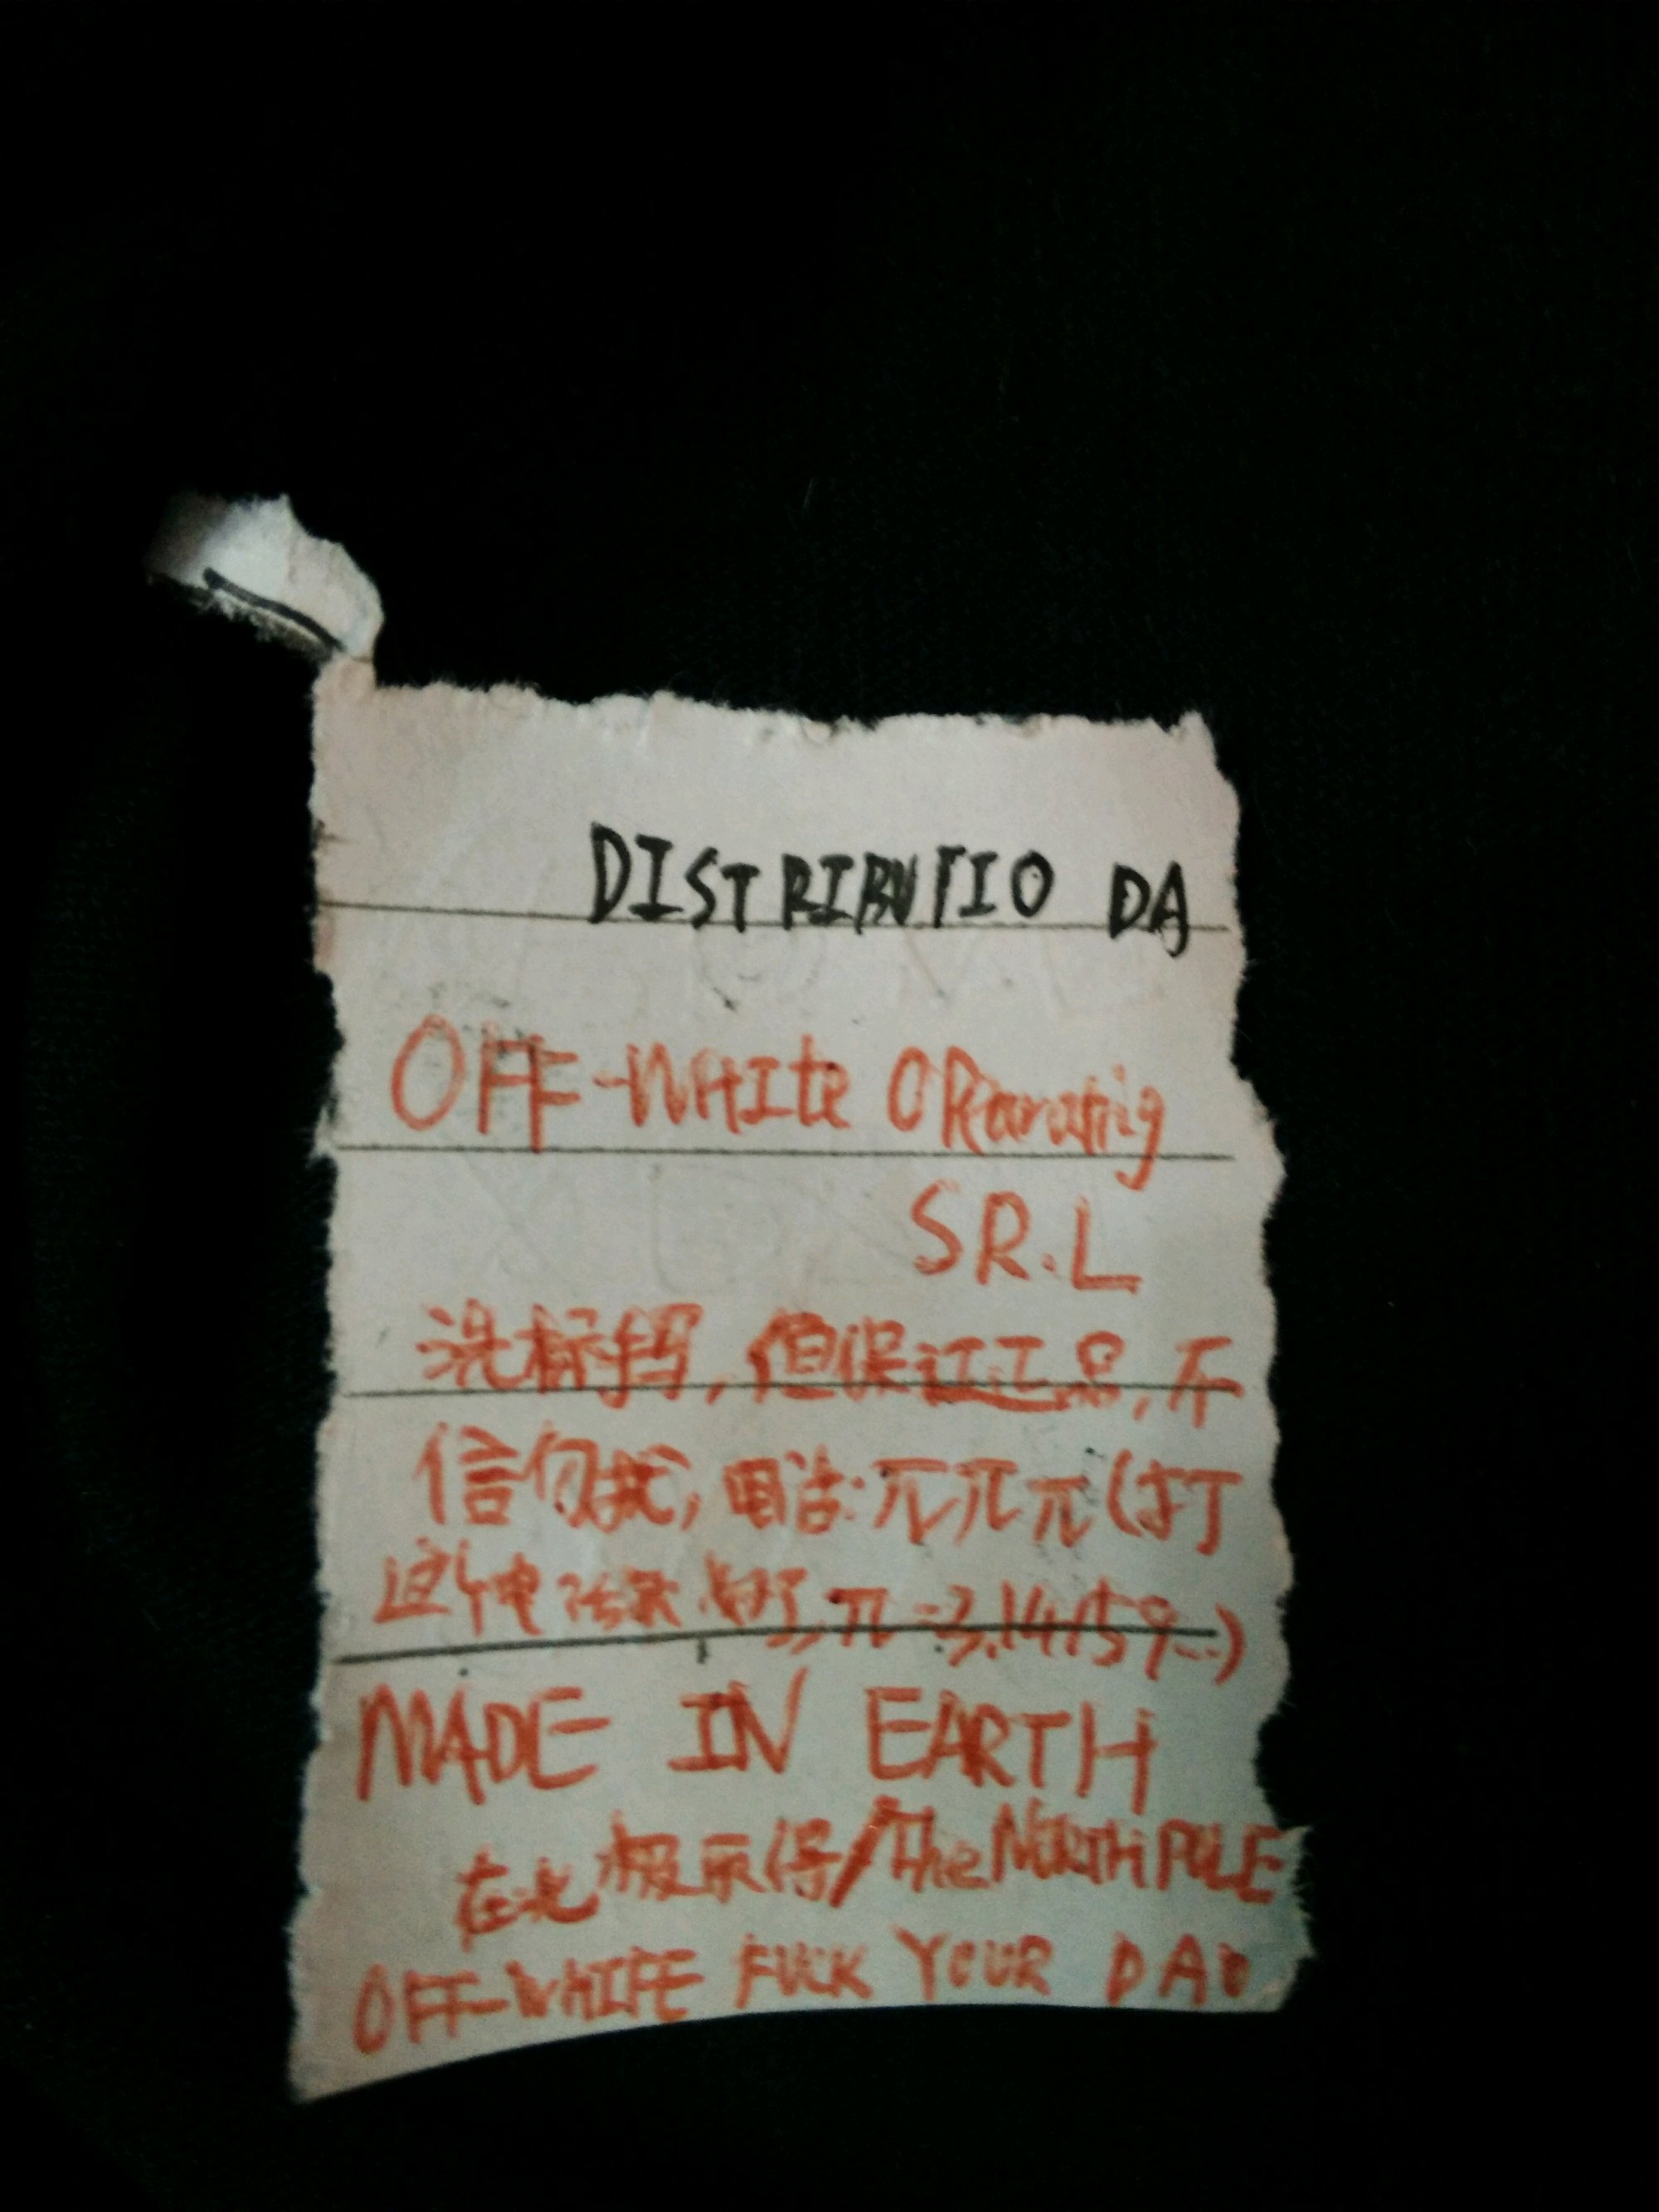 DISTRIBUTIO DA
OFF-WHIte OPerating
SR.L
洗标挡,但保证正品,不
信勿扰,电话:兀兀π(打
这个电话就,π=3.14159...)
MADE IN EARTH
在北极示得/The NORTH POLE
OFF-WHIFE FUCK YOUR DAD